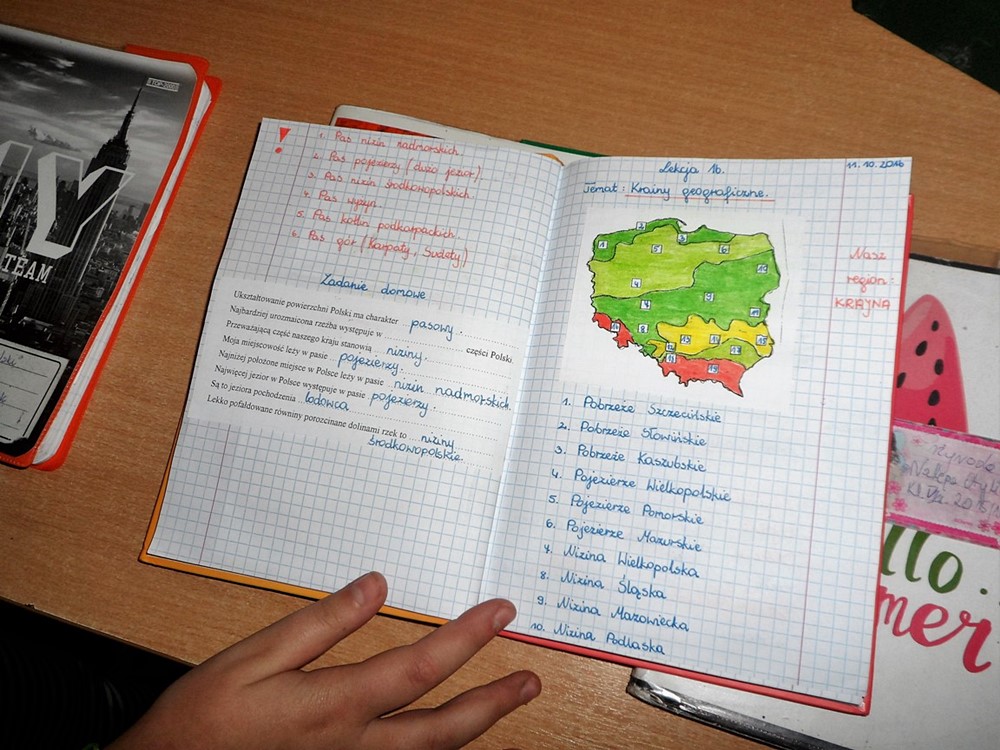 1. Pas nizin nadmorskich.
2. Pas pojezierzy (dużo jezior).
3. Pas nizin środkowopolskich.
4. Pas wyżyn
5. Pas kotlin podkarpackich.
6. Pas gór (Karpaty, Sudety)
Zadanie domowe
Ukształtowanie powierzchni Polski ma charakter pasowy.
Najbardziej urozmaicona rzeźba występuje w części Polski.
Przeważającą część naszego kraju stanowią niziny.
Moja miejscowość leży w pasie pojezierzy.
Najniżej położone miejsce w Polsce leży w pasie nizin nadmorskich.
Najwięcej jezior w Polsce występuje w pasie pojezierzy.
Są to jeziora pochodzenia lodowca
Lekko pofałdowane równiny porozcinane dolinami rzek to niziny
środkowopolskie.
Lekcja 16.
11.10.2016
Temat: Krainy geograficzne.
Nasz
region:
KRAJNA
1. Pobrzeże Szczecińskie
2. Pobrzeże Słowińskie
3. Pobrzeże Kaszubskie
4. Pojezierze Wielkopolskie
5. Pojezierze Pomorskie
6. Pojezierze Mazurskie
7. Nizina Wielkopolska
8. Nizina Śląska
9. Nizina Mazowiecka
10. Nizina Podlaska
TEAM
llo
mer